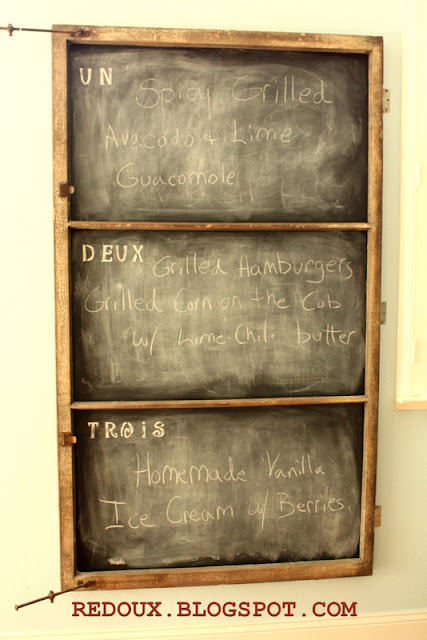 UN
Spicy Grilled
Avacado & Lime
Guacomole
DEUX
Grilled Hamburgers
Grilled Corn on the Cob
w/ Lime-Chili butter
TROiS
Homemade Vanilla
Ice Cream w/ Berries
REDOUX.BLOGSPOT.COM